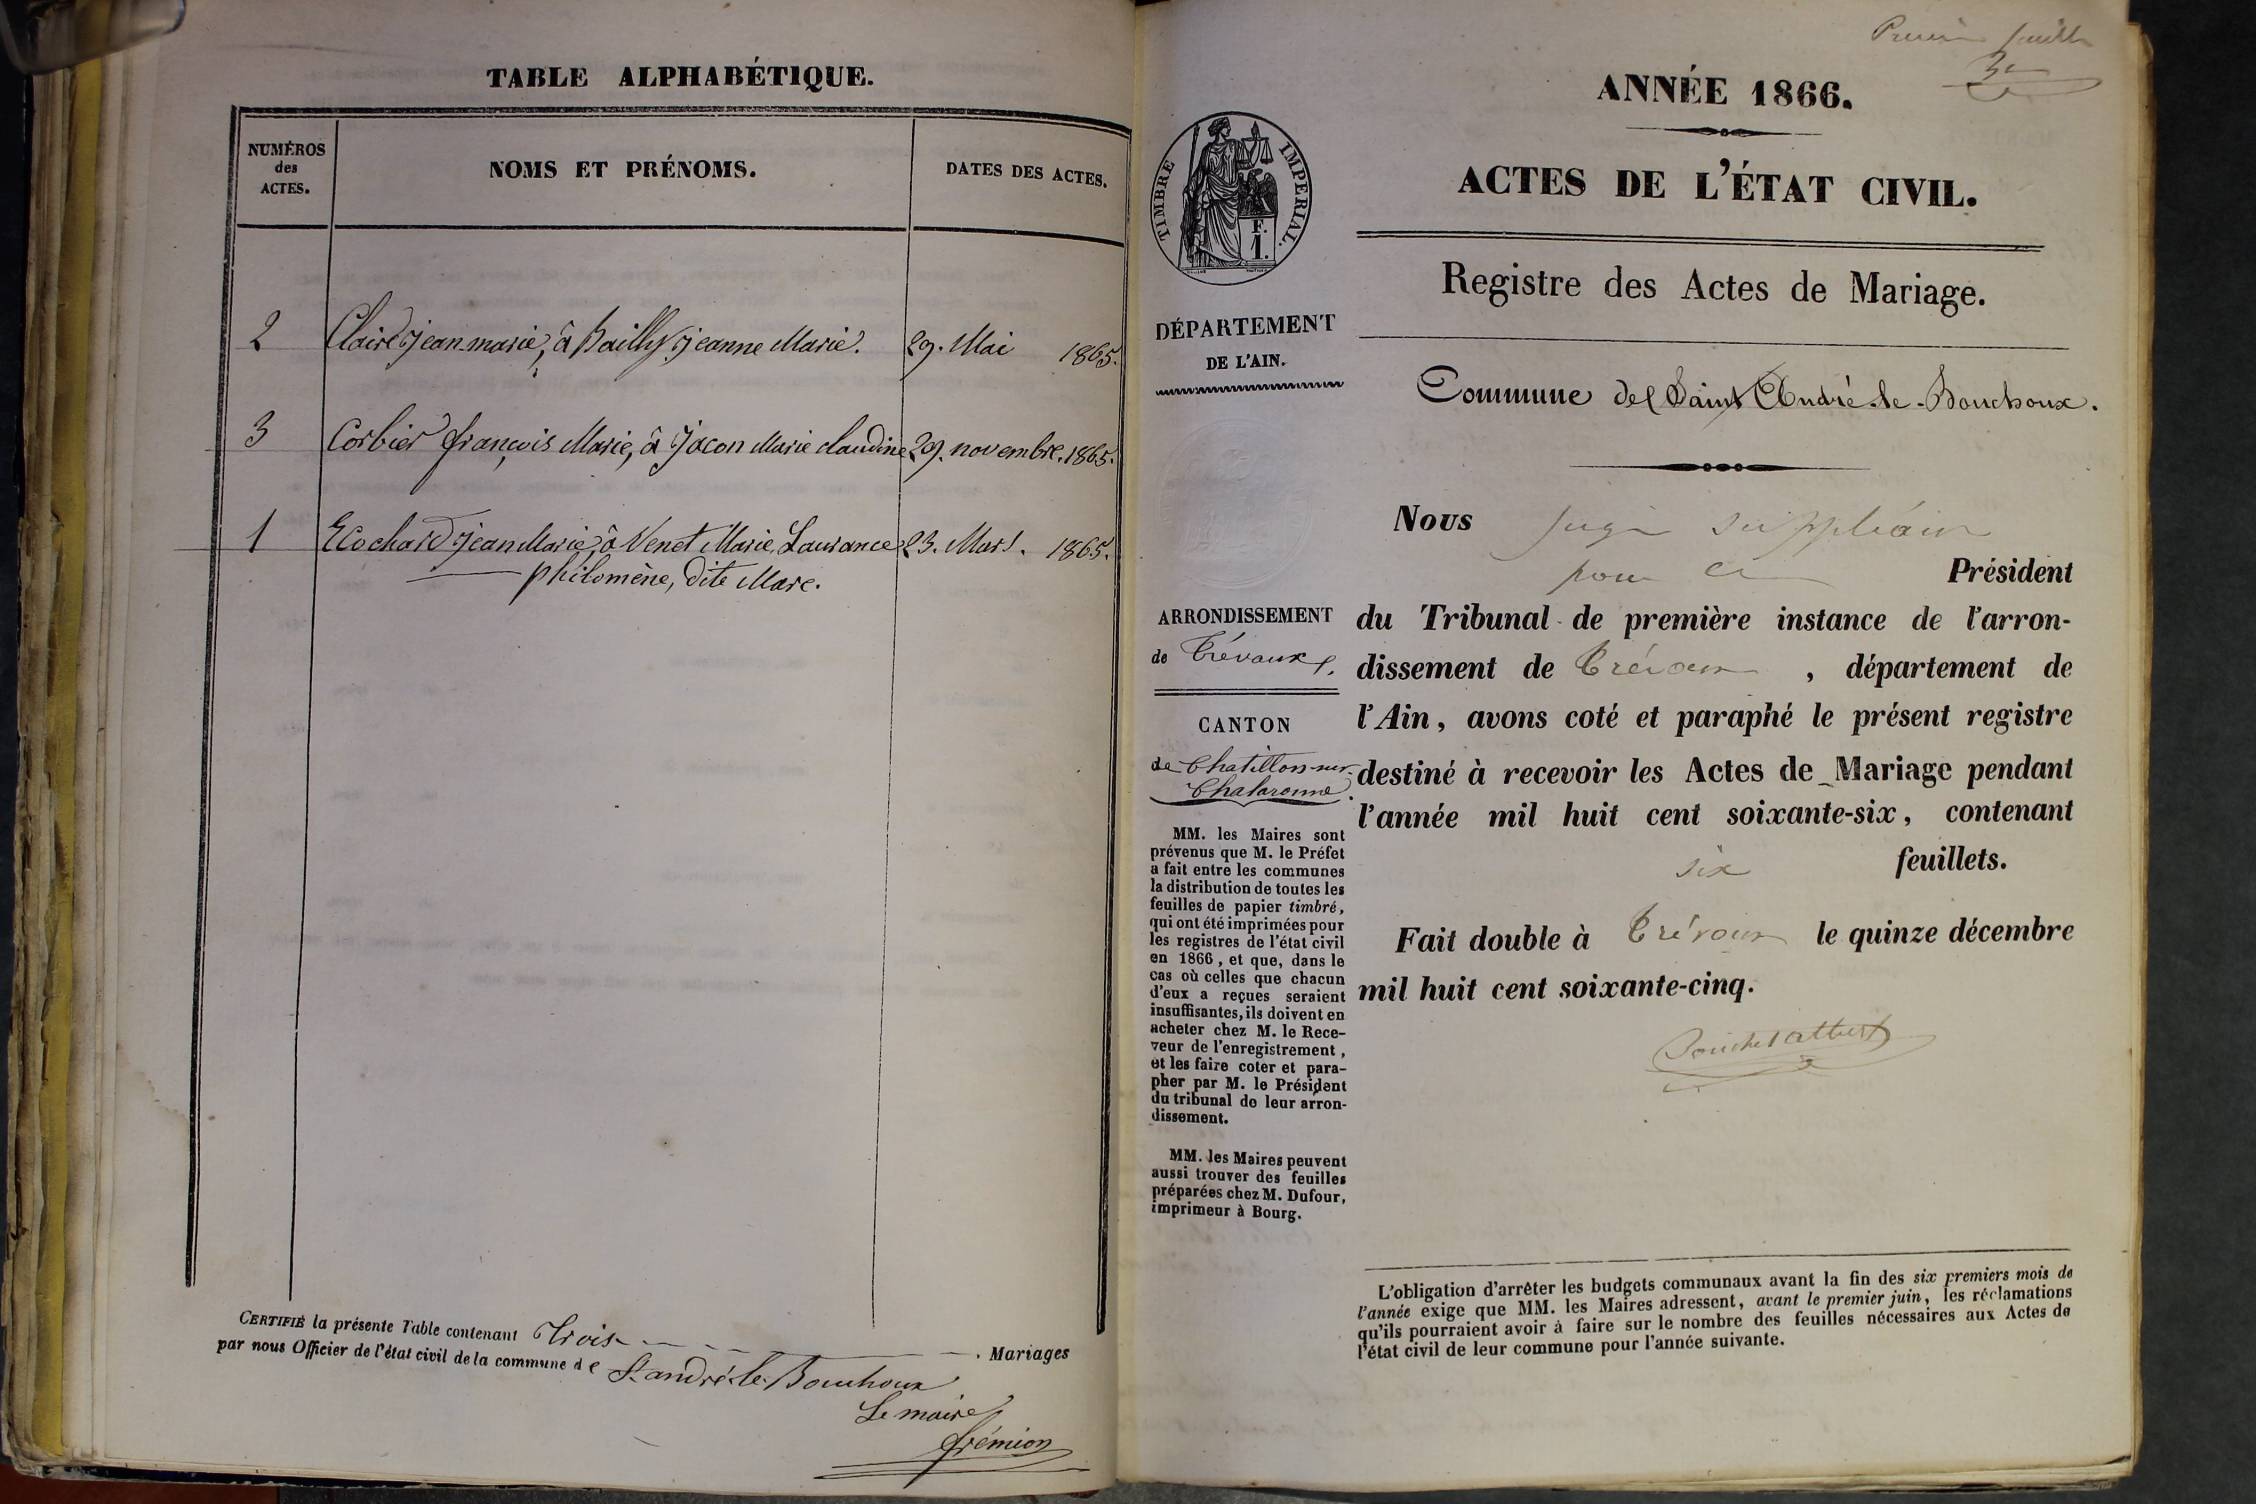 TABLE ALPHABÉTIQUE.
NUMÉROS
des
ACTES.
NOMS ET PRÉNOMS.
DATES DES ACTES.
2 Claire jean marie, à Bailly jeanne Marie. 29. Mai 1865.
3 Corbier françois Marie, à Jacon Marie claudine 29. novembre. 1865.
1 Ecochard jean Marie, à Venet Marie Laurance 23. Mars. 1865.
philomène, dite Marc.
CERTIFIÉ la présente Table contenant trois Mariages
par nous Officier de l'état civil de la commune de St andré-le-Bouchoux
Le maire
frémion
Premier feuillet
ANNÉE 1866.
ACTES DE L'ÉTAT CIVIL.
Registre des Actes de Mariage.
Commune de Saint André-le-Bouchoux.
TIMBRE IMPERIAL.
F.
1.
DÉPARTEMENT
DE L'AIN.
ARRONDISSEMENT
de Trévoux.
CANTON
de Chatillon-sur-
Chalaronne.
MM. les Maires sont
prévenus que M. le Préfet
a fait entre les communes
la distribution de toutes les
feuilles de papier timbré,
qui ont été imprimées pour
les registres de l'état civil
en 1866, et que, dans le
cas où celles que chacun
d'eux a reçues seraient
insuffisantes, ils doivent en
acheter chez M. le Rece-
veur de l'enregistrement,
et les faire coter et para-
pher par M. le Président
du tribunal de leur arron-
dissement.
MM. les Maires peuvent
aussi trouver des feuilles
préparées chez M. Dufour,
imprimeur à Bourg.
Nous juge suppléant
pour le Président
du Tribunal de première instance de l'arron-
dissement de Trévoux, département de
l'Ain, avons coté et paraphé le présent registre
destiné à recevoir les Actes de Mariage pendant
l'année mil huit cent soixante-six, contenant
six feuillets.
Fait double à Trévoux le quinze décembre
mil huit cent soixante-cinq.
L'obligation d'arrêter les budgets communaux avant la fin des six premiers mois de
l'année exige que MM. les Maires adressent, avant le premier juin, les réclamations
qu'ils pourraient avoir à faire sur le nombre des feuilles nécessaires aux Actes de
l'état civil de leur commune pour l'année suivante.